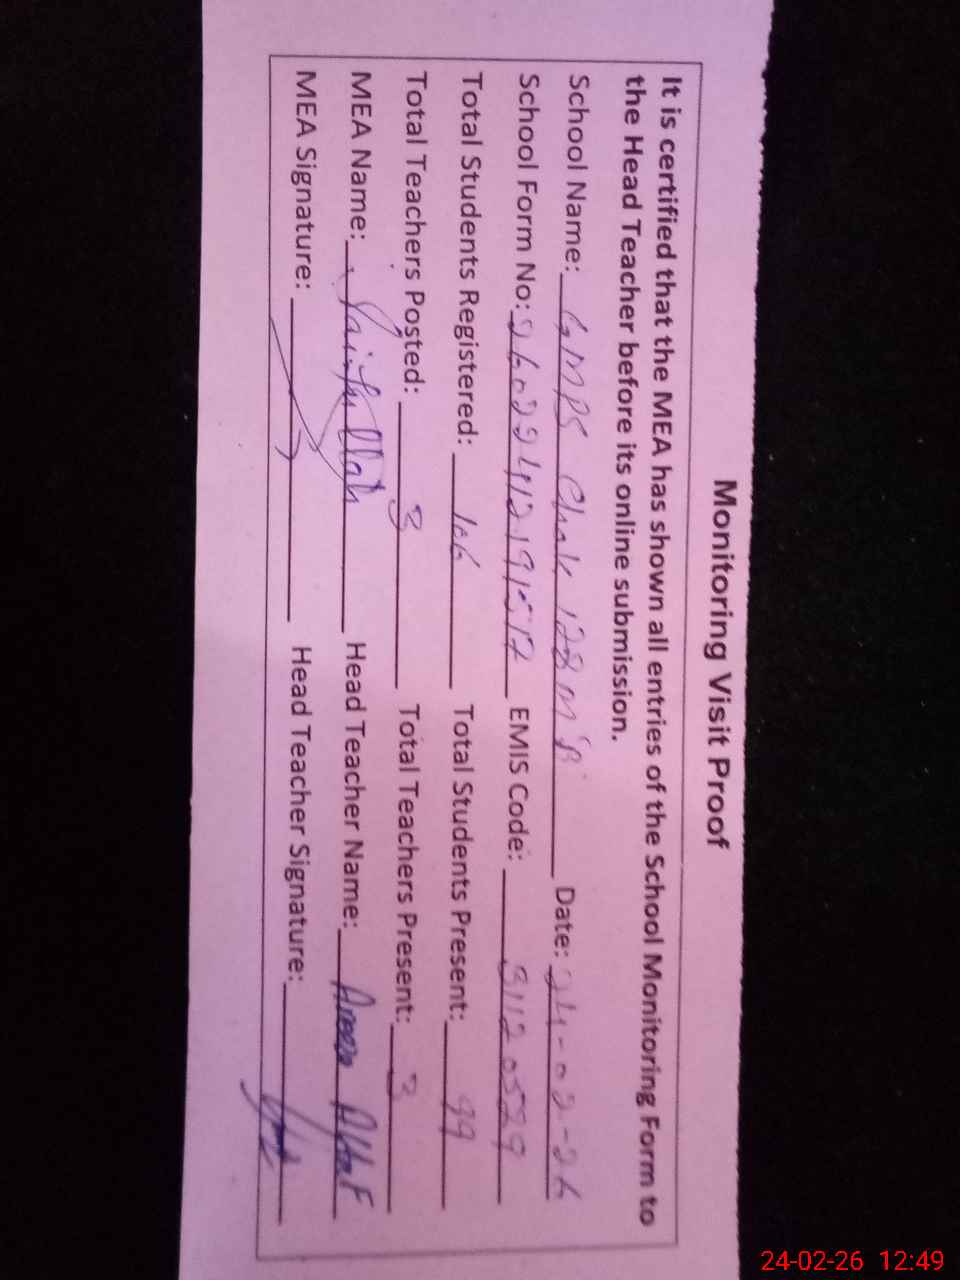 Monitoring Visit Proof
It is certified that the MEA has shown all entries of the School Monitoring Form to
the Head Teacher before its online submission.
School Name: GMPS Chak 128 m P Date: 24-02-26
School Form No: EMIS Code: 31120529
Total Students Registered: 106 Total Students Present: 99
Total Teachers Posted: 3 Total Teachers Present: 3
MEA Name: Saif Ullah Head Teacher Name: Altaf
MEA Signature: Head Teacher Signature:
24-02-26 12:49